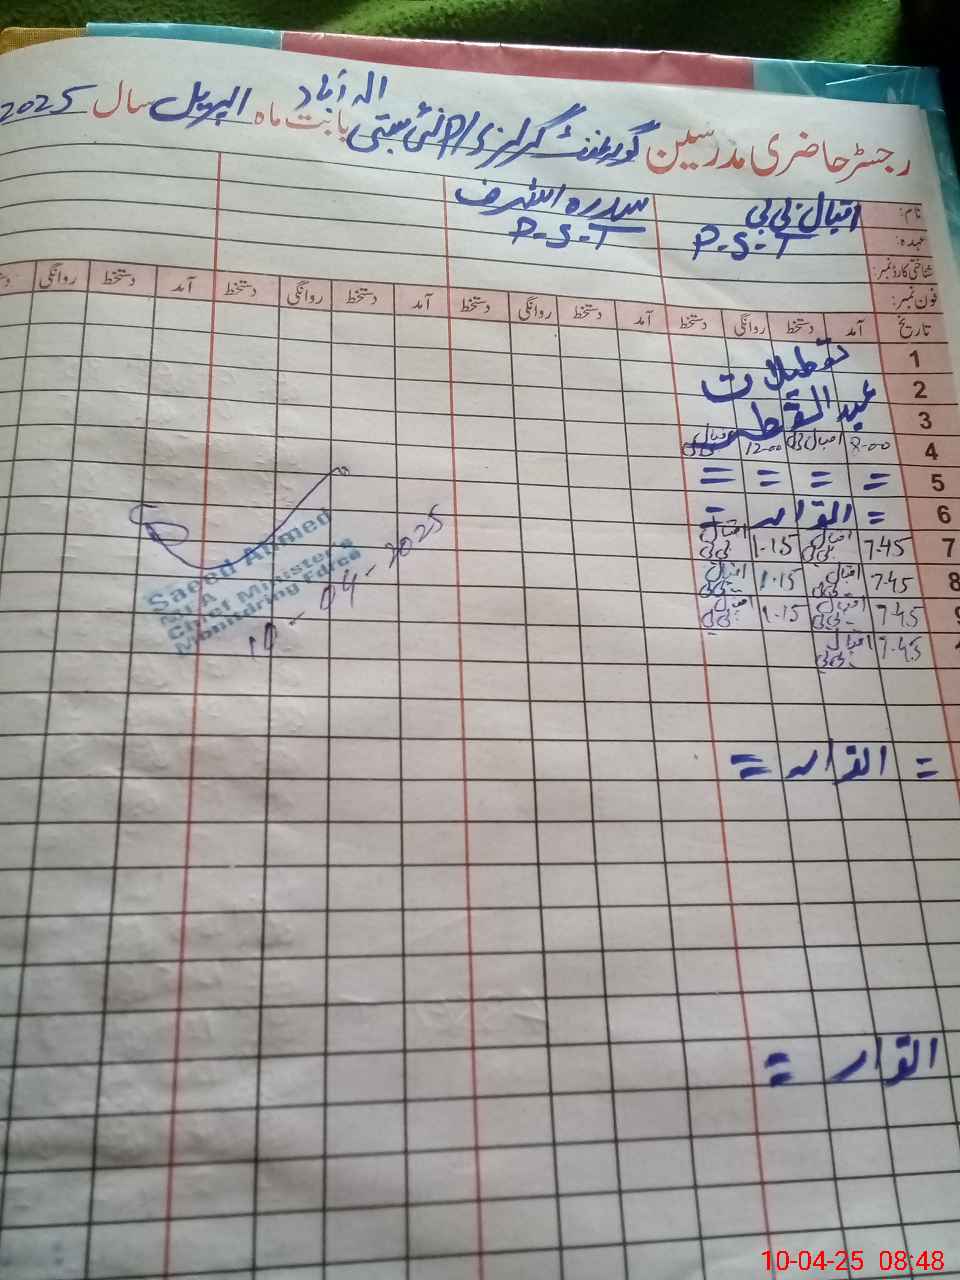 الہ آباد
رجسٹر حاضری مدرسین گورنمنٹ گرلز P/S نئی بستی بابت ماہ اپریل سال 2025
نام: اقبال بی بی سدرہ اشرف
عہدہ: P-S-T P-S-T
شناختی کارڈ نمبر:
فون نمبر:
تاریخ آمد دستخط روانگی دستخط آمد دستخط روانگی دستخط آمد دستخط روانگی دستخط آمد دستخط روانگی
1 تعطیلات
2
3 عید الفطر
4 8-00 اقبال بی بی 12-00 اقبال بی بی
5 = = = =
6 = اتوار =
7 7-45 اقبال بی بی 1-15 اقبال بی بی
8 7-45 اقبال بی بی 1-15 اقبال بی بی
9 7-45 اقبال بی بی 1-15 اقبال بی بی
7-45 اقبال بی بی
= اتوار =
اتوار =
Saeed Ahmed
M.E.A
Chief Minister's
Monitoring Force
10-04-2025
10-04-25 08:48